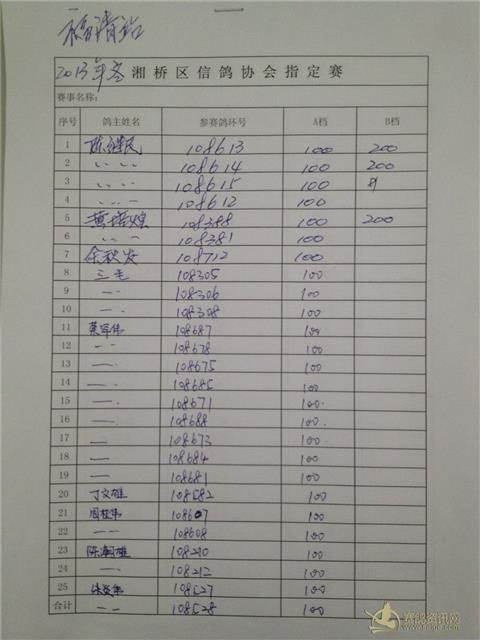 福清站
2013年冬 湘桥区信鸽协会指定赛
赛事名称:
序号 鸽主姓名 参赛鸽环号 A档 B档
1 陈继民 108613 100 200
2 〃 〃 108614 100 200
3 〃 〃 108615 100
4 〃 〃 108612 100
5 108388 100 200
6 〃 〃 108381 100
7 余秋发 108712 100
8 三毛 108305 100
9 — · 108306 100
10 — · 108308 100
11 108687 100
12 108678 100
13 — · 108675 100
14 — · 108685 100
15 — · 108671 100
16 — · 108688 100
17 — 108673 100
18 — 108684 100
19 — 108681 100
20 丁文雄 108582 100
21 108607 100
22 — 108608 100
23 108210 100
24 — · 108212 100
25 108527 100
合计 108528 100
赛鸽资讯网